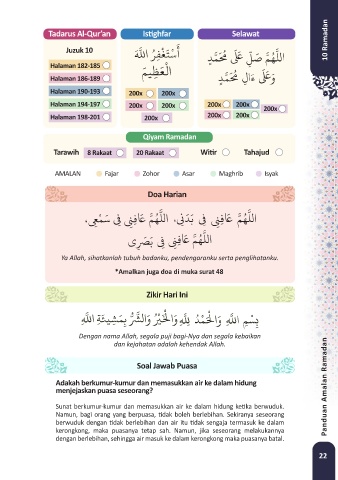 Tadarus Al-Qur’an
Istighfar
Selawat
10 Ramadan
Juzuk 10
Halaman 182-185
Halaman 186-189
Halaman 190-193
Halaman 194-197
Halaman 198-201
أَسْتَغْفِرُ اللَّهَ
الْعَظِيمَ
200x 200x
200x 200x
200x
اللَّهُمَّ صَلِّ عَلَى مُحَمَّدٍ
وَعَلَى آلِ مُحَمَّدٍ
200x 200x
200x
200x 200x
Qiyam Ramadan
Tarawih 8 Rakaat 20 Rakaat Witir Tahajud
AMALAN Fajar Zohor Asar Maghrib Isyak
Doa Harian
اللَّهُمَّ عَافِنِي فِي بَدَنِي، اللَّهُمَّ عَافِنِي فِي سَمْعِي،
اللَّهُمَّ عَافِنِي فِي بَصَرِي
Ya Allah, sihatkanlah tubuh badanku, pendengaranku serta penglihatanku.
*Amalkan juga doa di muka surat 48
Zikir Hari Ini
بِسْمِ اللَّهِ وَالْحَمْدُ لِلَّهِ وَالْخَيْرُ وَالشَّرُّ بِمَشِيئَةِ اللَّهِ
Dengan nama Allah, segala puji bagi-Nya dan segala kebaikan
dan kejahatan adalah kehendak Allah.
Soal Jawab Puasa
Adakah berkumur-kumur dan memasukkan air ke dalam hidung
menjejaskan puasa seseorang?
Sunat berkumur-kumur dan memasukkan air ke dalam hidung ketika berwuduk.
Namun, bagi orang yang berpuasa, tidak boleh berlebihan. Sekiranya seseorang
berwuduk dengan tidak berlebihan dan air itu tidak sengaja termasuk ke dalam
kerongkong, maka puasanya tetap sah. Namun, jika seseorang melakukannya
dengan berlebihan, sehingga air masuk ke dalam kerongkong maka puasanya batal.
Panduan Amalan Ramadan
22